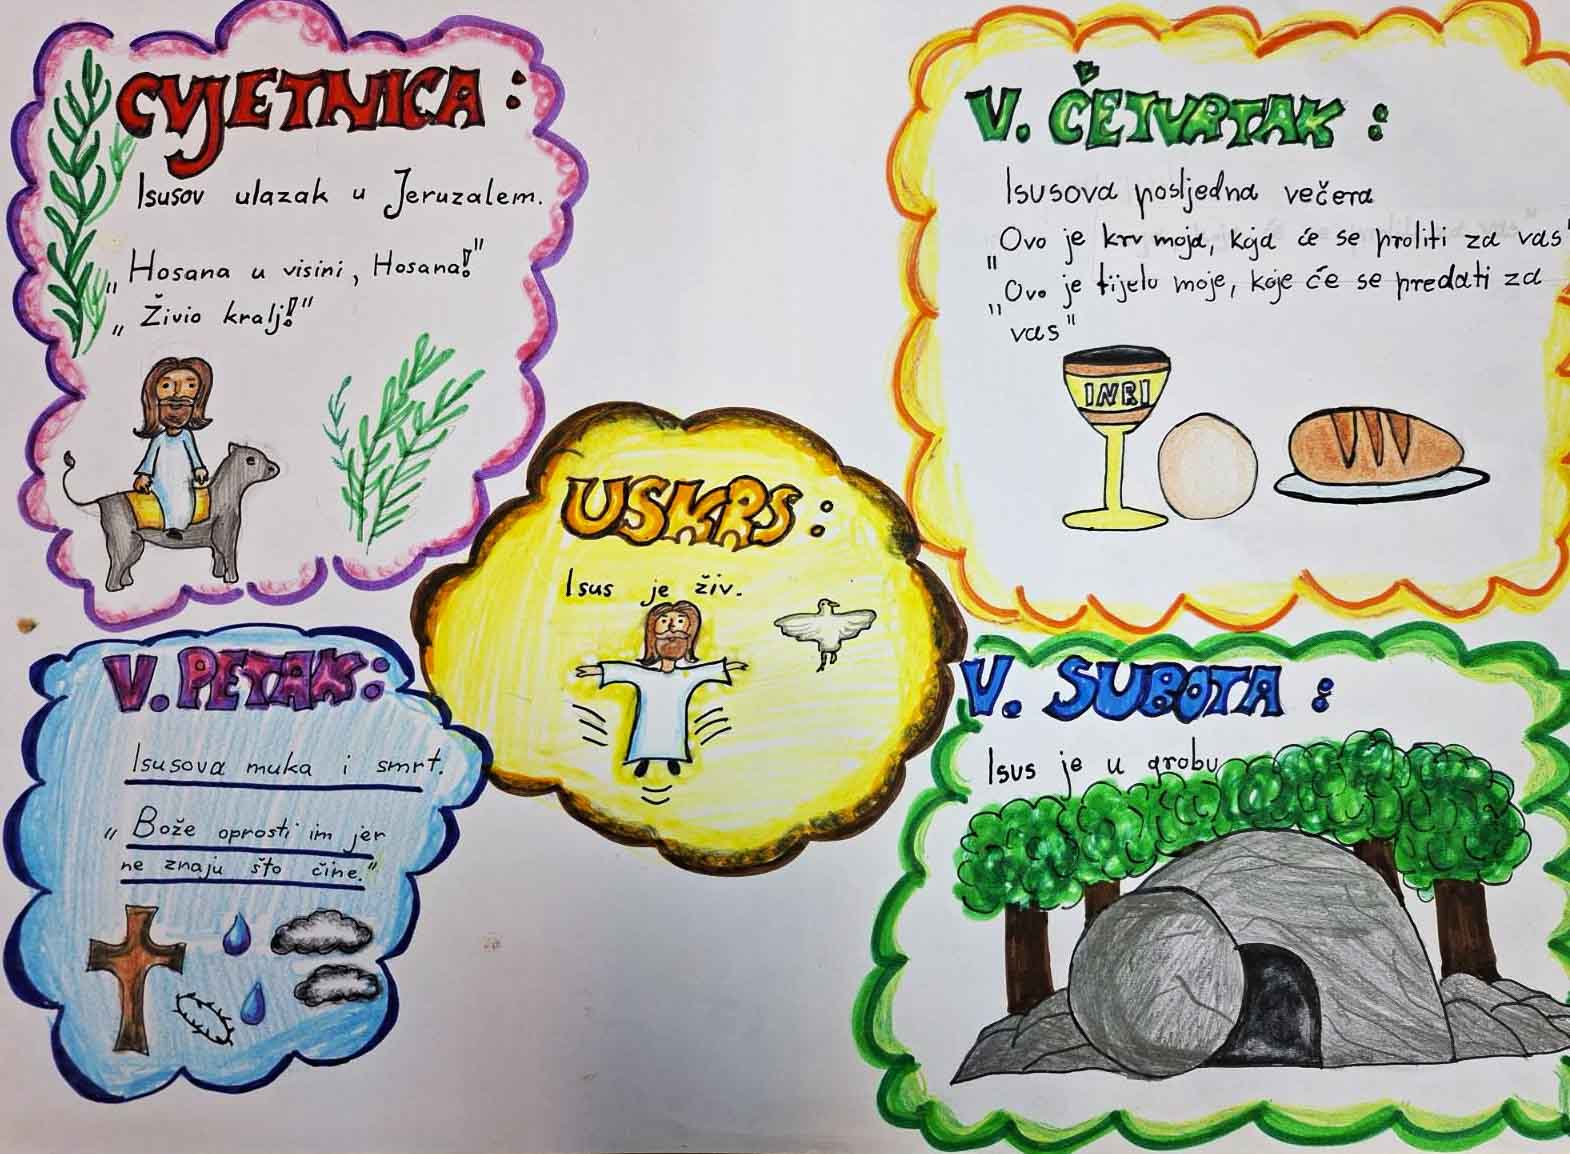 CVJETNICA:
Isusov ulazak u Jeruzalem.
„Hosana u visini, Hosana!"
„Živio kralj!"
V. ČETVRTAK:
Isusova posljedna večera
„Ovo je krv moja, koja će se proliti za vas"
„Ovo je tijelo moje, koje će se predati za
vas"
INRI
USKRS:
Isus je živ.
V. PETAK:
Isusova muka i smrt.
„Bože oprosti im jer
ne znaju što čine."
V. SUBOTA:
Isus je u grobu